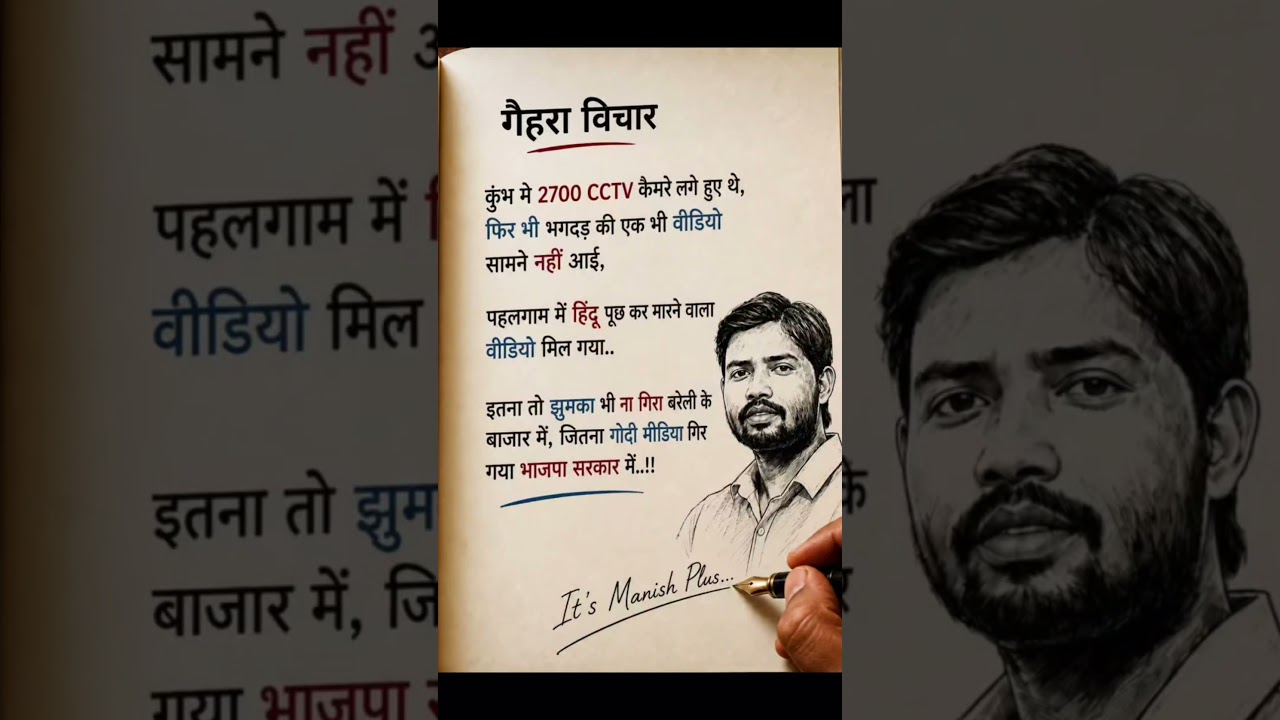 गैहरा विचार
कुंभ मे 2700 CCTV कैमरे लगे हुए थे,
फिर भी भगदड़ की एक भी वीडियो
सामने नहीं आई,
पहलगाम में हिंदू पूछ कर मारने वाला
वीडियो मिल गया..
इतना तो झुमका भी ना गिरा बरेली के
बाजार में, जितना गोदी मीडिया गिर
गया भाजपा सरकार में..!!
It's Manish Plus...